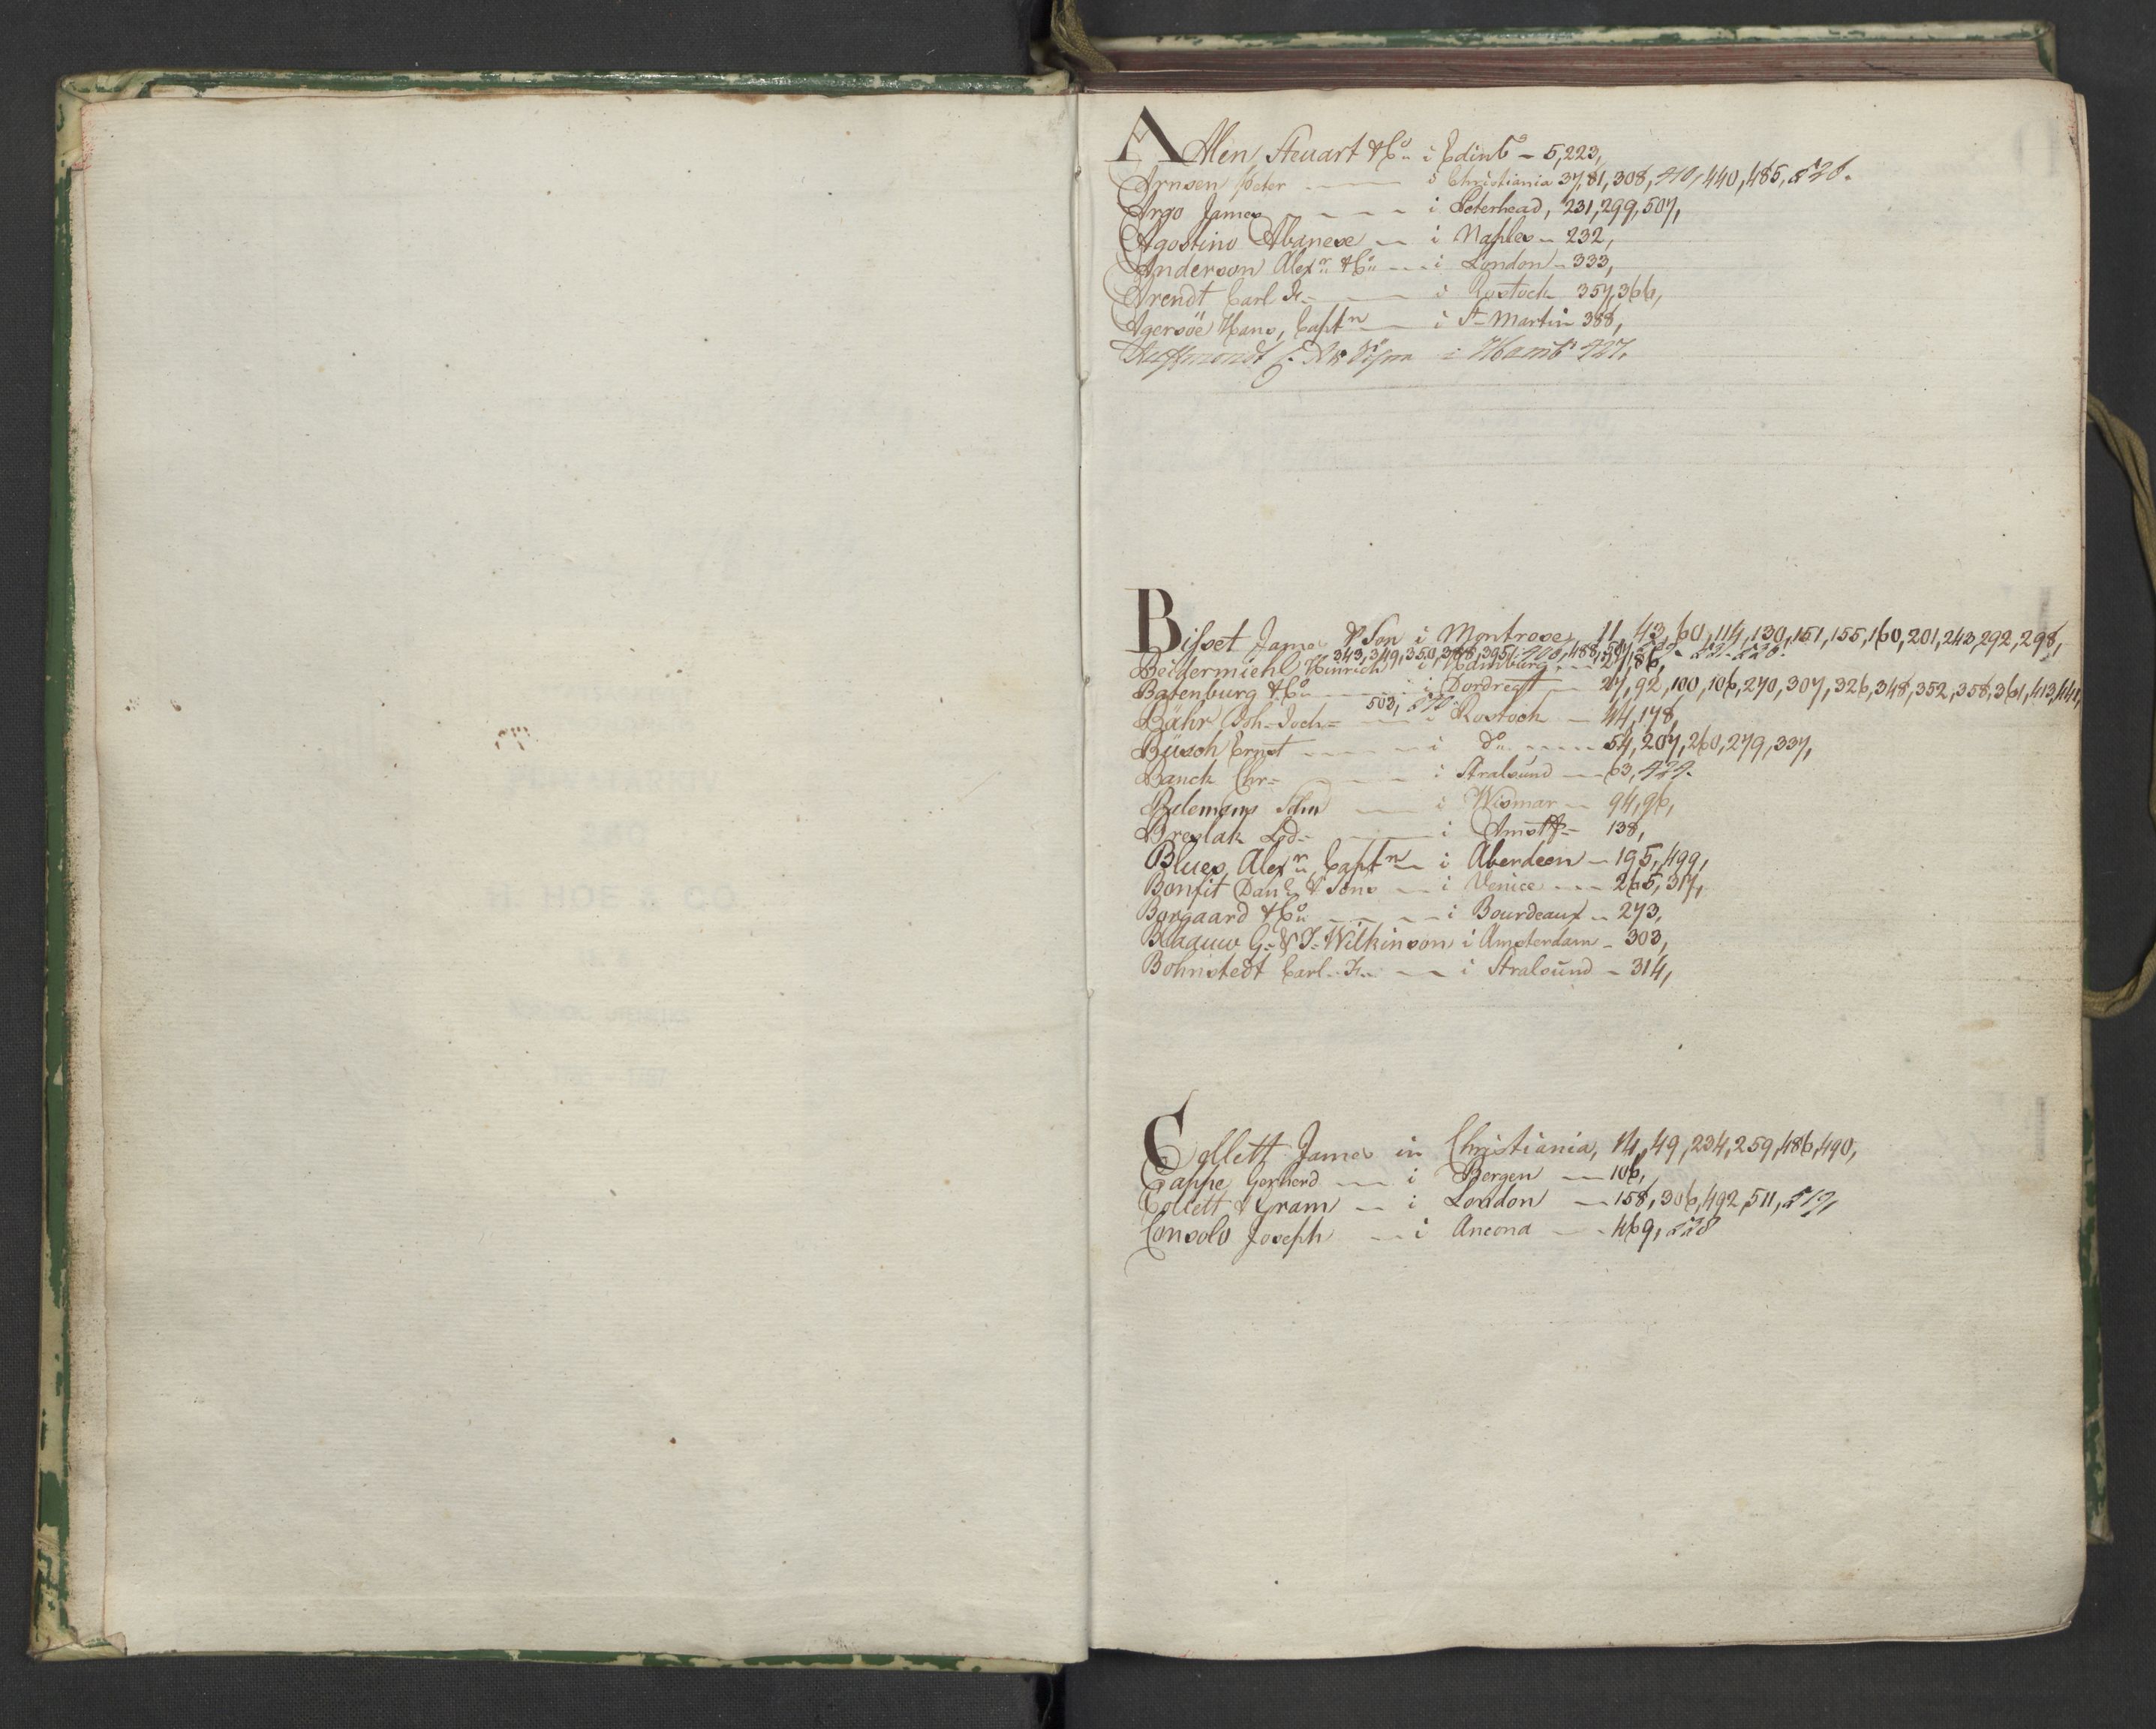 Allen Steuart & Co. i Edinb. – 5, 223,
Arnsen Peter i Christiania 37, 81, 308, 410, 440, 485, 526.
Argo James i Peterhead, 231, 299, 507,
Agostino Abanese i Naples – 232,
Anderson Alexr. & Co. i London – 333,
Arendt Carl Fr. i Rostock 357, 366,
Agersöe Hans, Captn i St Martin 388,
i Hambr 427.
Bisset James & Son i Montrose 11, 43, 60, 114, 130, 151, 155, 160, 201, 243, 292, 298,
343, 349, 350, 388, 395, 408, 488, 507,
Beidermiehl Hinrich i Hamburg 27, 86,
Batenburg & Co. i Dordregt 27, 92, 100, 106, 270, 307, 326, 348, 352, 358, 361, 413, 441,
503,
Bähr Joh. Joch. i Rostock – 44, 178,
Büsch Ernst i do. 54, 207, 260, 279, 337,
Banck Chr. i Stralsund 63, 424.
i Wismar 94, 96,
Breslak Lod. i Amst. 138,
Blues, Alexr. Captn i Aberdeen – 195, 499,
Bonfit Danl. & Sons i Venice 265, 317,
Borgaard & Co. i Bourdeaux 273,
Blaauw G. & J. Wilkinson i Amsterdam – 303,
Bohnstedt Carl Fr. i Stralsund – 314,
Collett James in Christiania, 14, 49, 234, 259, 486, 490,
Cappe Gerherd i Bergen 106,
Collett & Gram i London 158, 306, 492, 511, 517,
Consolo Joseph i Ancona 469, 528